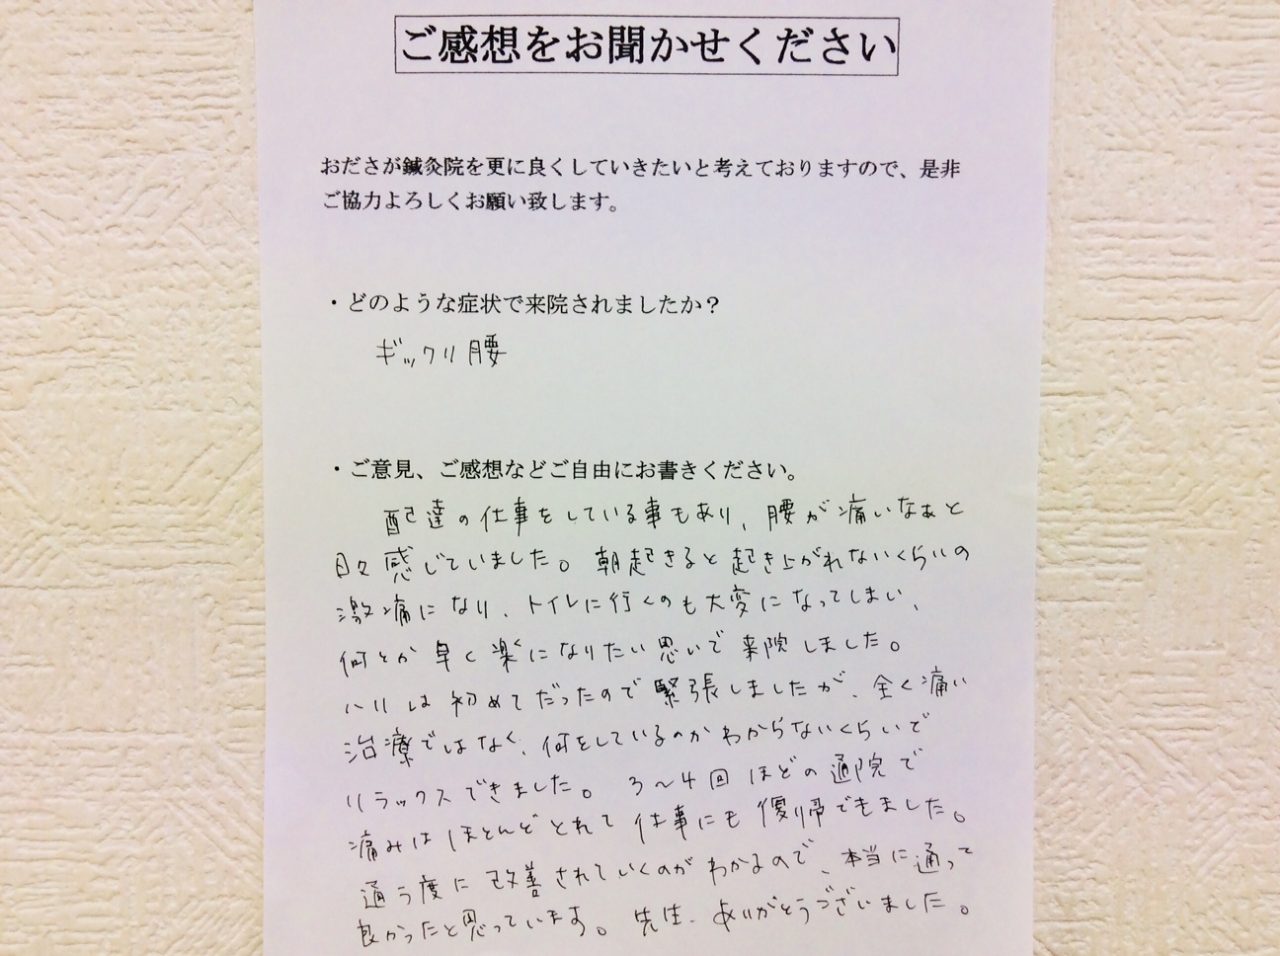 ご感想をお聞かせください
おださが鍼灸院を更に良くしていきたいと考えておりますので、是非
ご協力よろしくお願い致します。
・どのような症状で来院されましたか？
ギックリ腰
・ご意見、ご感想などご自由にお書きください。
配達の仕事をしている事もあり、腰が痛いなぁと
日々感じていました。朝起きると起き上がれないくらいの
激痛になり、トイレに行くのも大変になってしまい、
何とか早く楽になりたい思いで来院しました。
ハリは初めてだったので緊張しましたが、全く痛い
治療ではなく、何をしているのかわからないくらいで
リラックスできました。3～4回ほどの通院で
痛みはほとんどとれて仕事にも復帰できました。
通う度に改善されていくのがわかるので、本当に通って
良かったと思っています。先生、ありがとうございました。